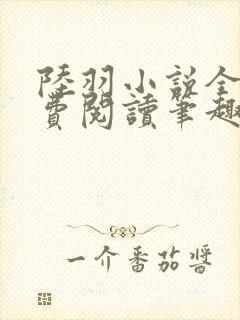 陸羽小說全
費閱讀筆趣
一介番茄醬